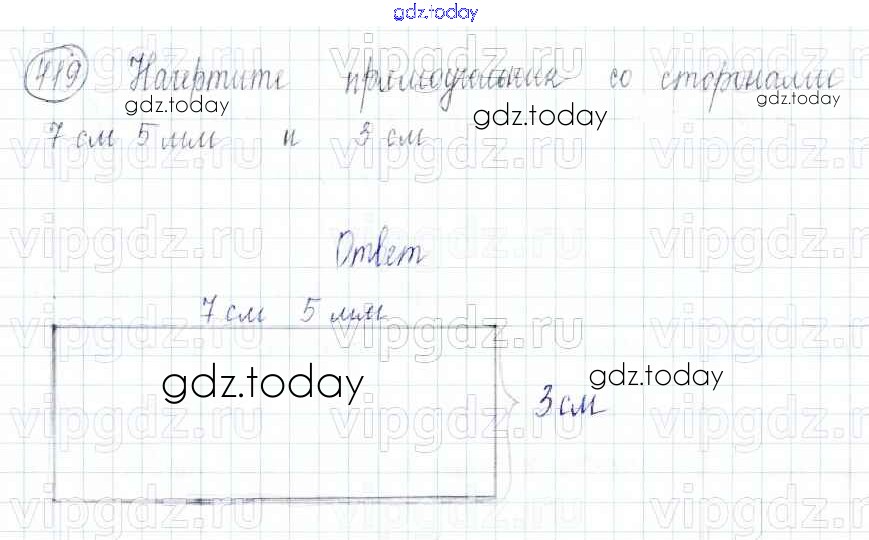 gdz.today
419 Начертите прямоугольник со сторонами
gdz.today gdz.today gdz.today
7 см 5 мм и 3 см
vipgdz.ru vipgdz.ru vipgdz.ru
Ответ
7 см 5 мм
gdz.today gdz.today
3 см